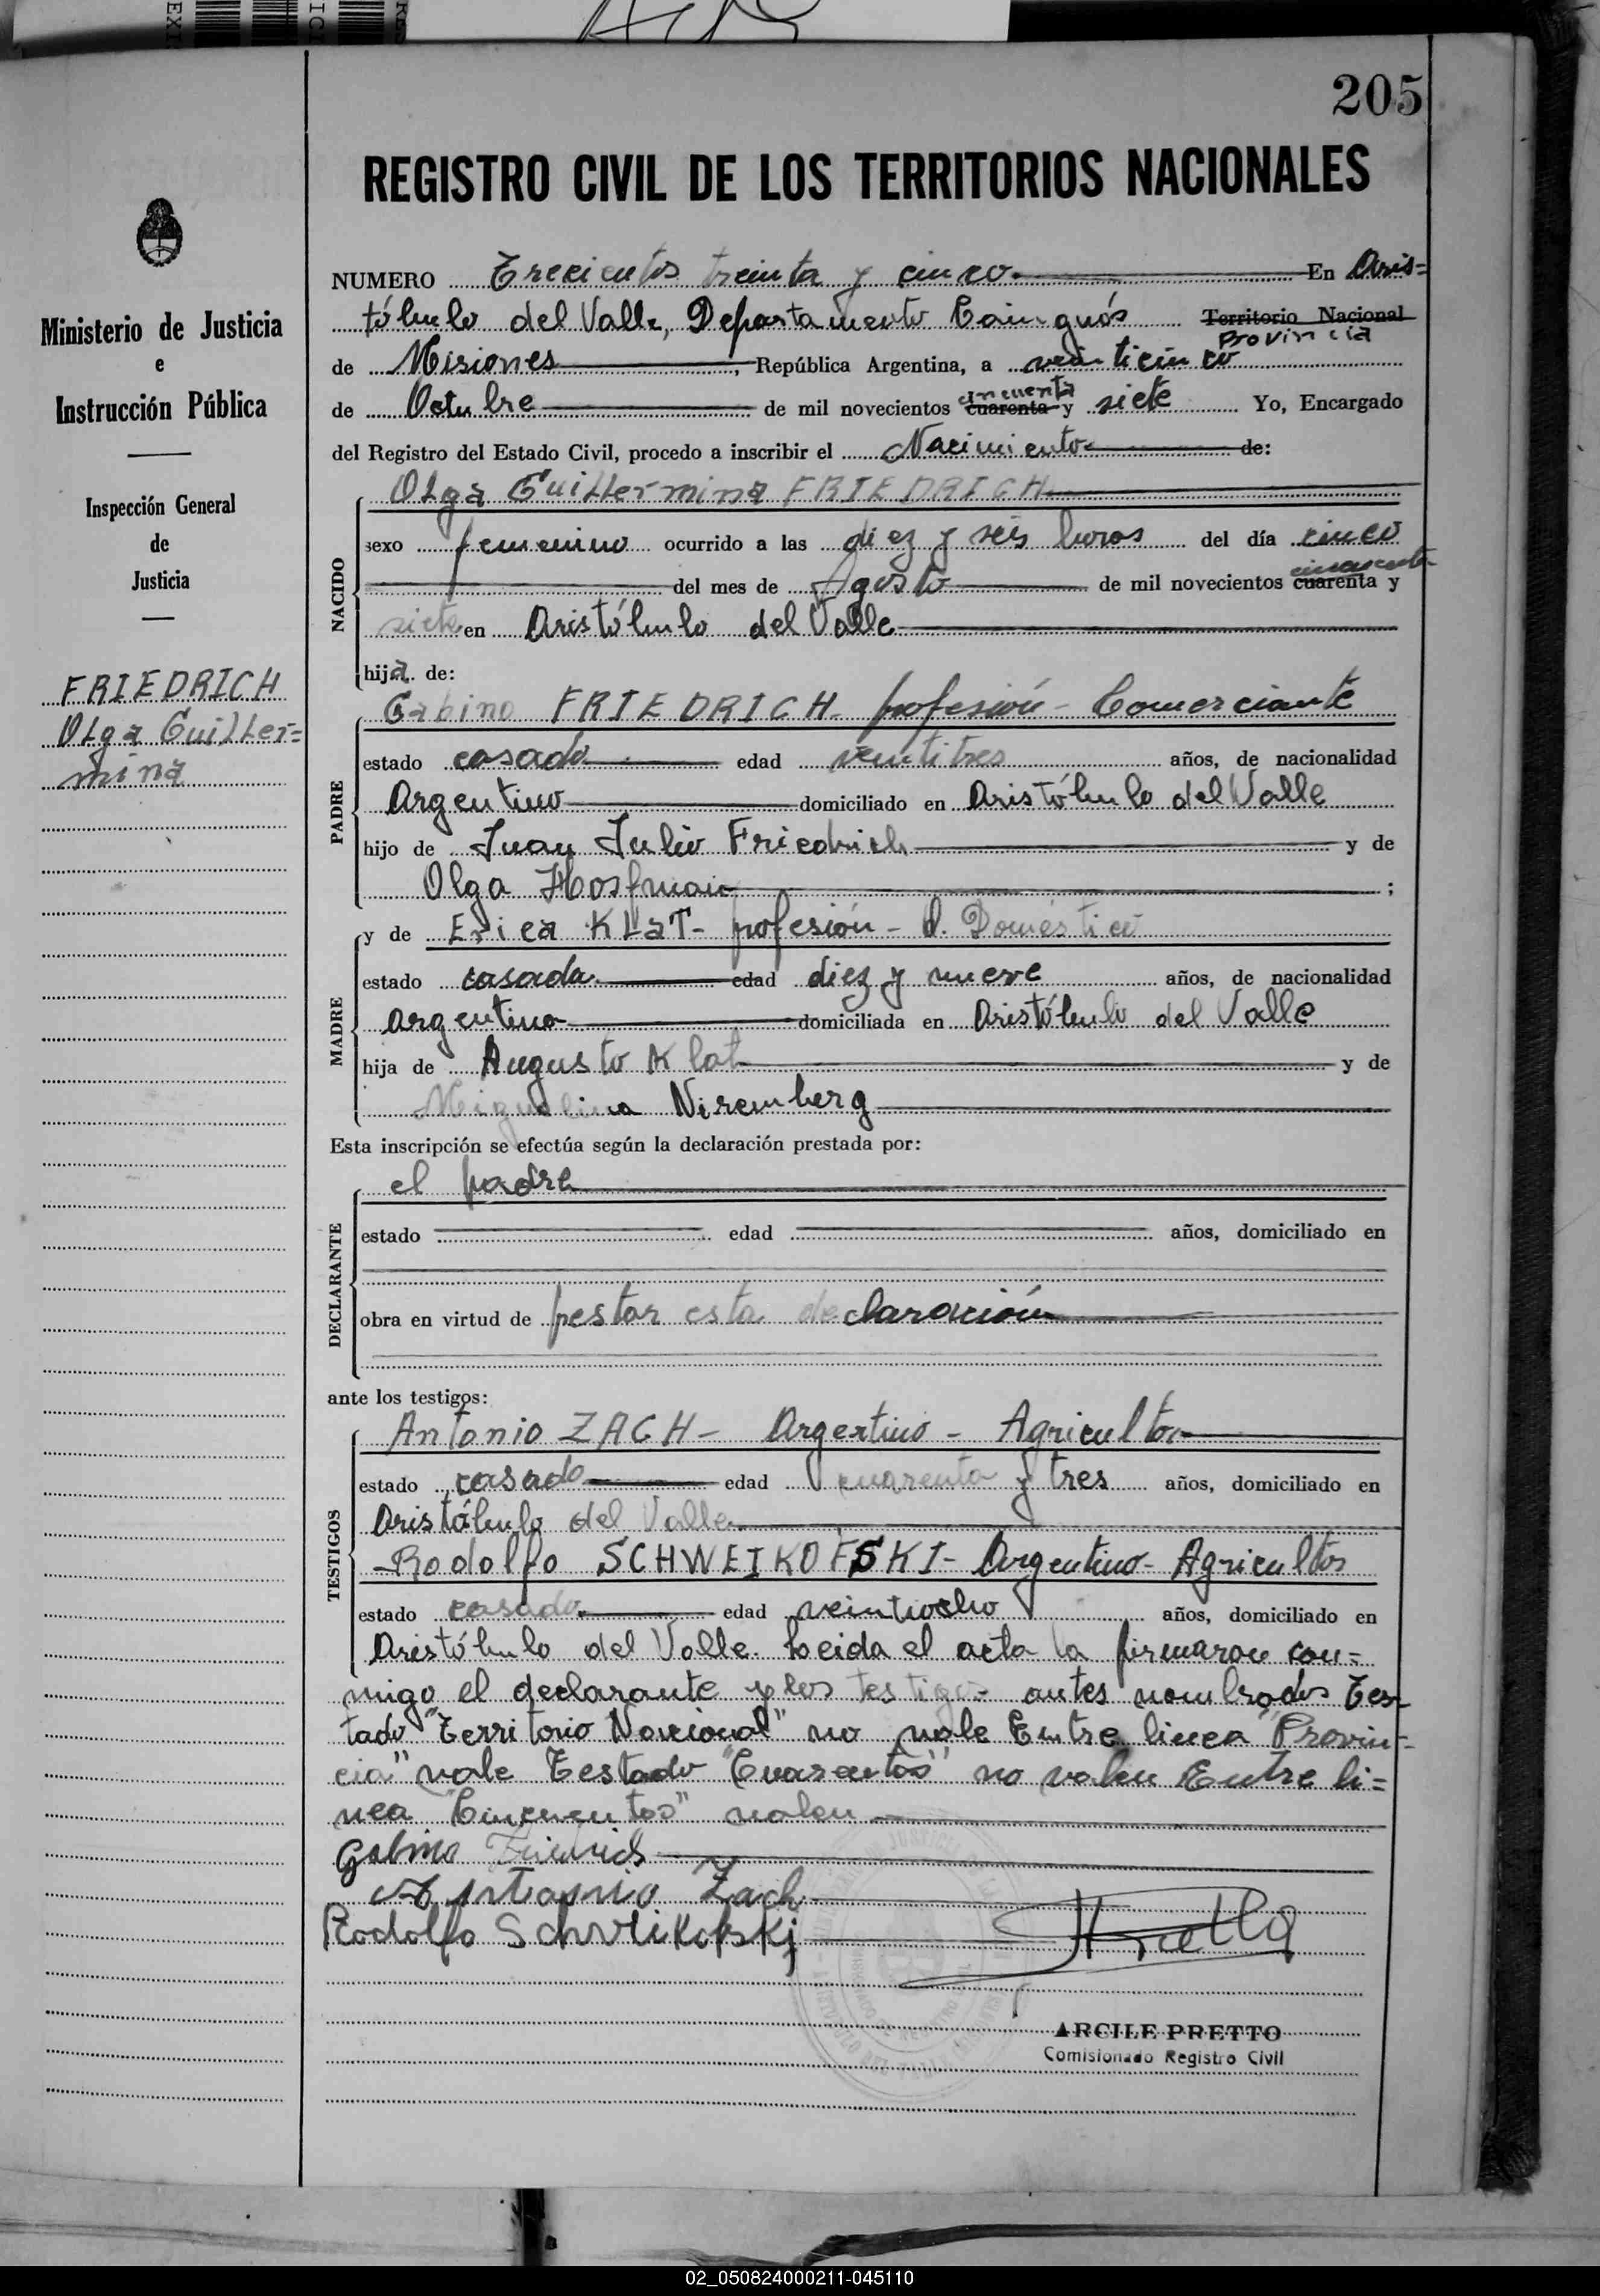 205
REGISTRO CIVIL DE LOS TERRITORIOS NACIONALES
Ministerio de Justicia
e
Instrucción Pública
Inspección General
de
Justicia
FRIEDRICH
Olga Guiller=
mina
NUMERO Trecientos treinta y cinco En Aris=
tóbulo del Valle, Departamento Cainguás Territorio Nacional
Provincia
de Misiones, República Argentina, a veinticinco
cincuenta
de Octubre de mil novecientos cuarenta y siete Yo, Encargado
del Registro del Estado Civil, procedo a inscribir el Nacimiento de:
NACIDO
Olga Guillermina FRIEDRICH
sexo femenino ocurrido a las diez y seis horas del día cinco
cincuenta
del mes de Agosto de mil novecientos cuarenta y
siete en Aristóbulo del Valle
hija de:
PADRE
Gabino FRIEDRICH- profesión- Comerciante
estado casado edad veintitres años, de nacionalidad
Argentino domiciliado en Aristóbulo del Valle
hijo de Juan Julio Friedrich y de
Olga Hosfman ;
MADRE
y de Erica KLaT- profesión- Q. Doméstico
estado casada edad diez y nueve años, de nacionalidad
argentina domiciliada en Aristóbulo del Valle
hija de Augusto Klat y de
Miguelina Niremberg
Esta inscripción se efectúa según la declaración prestada por:
DECLARANTE
el padre
estado edad años, domiciliado en
obra en virtud de pestar esta declaración
ante los testigos:
TESTIGOS
Antonio ZACH- Argentino- Agricultor
estado casado edad cuarenta y tres años, domiciliado en
Aristóbulo del Valle
Rodolfo SCHWEIKOFSKI- Argentino- Agricultor
estado casado edad veintiocho años, domiciliado en
Aristóbulo del Valle. Leida el acta la firmaron con=
migo el declarante y los testigos antes nombrados Tes=
tado "Territorio Nacional" no vale Entre linea "Provin=
cia" vale Testado "Cuarentas" no valen Entre li=
nea "Cincuentas" valen
Gabino Friedrich
Antonio Zach
Rodolfo Schveikofski
ARCILE PRETTO
Comisionado Registro Civil
02_050824000211-045110